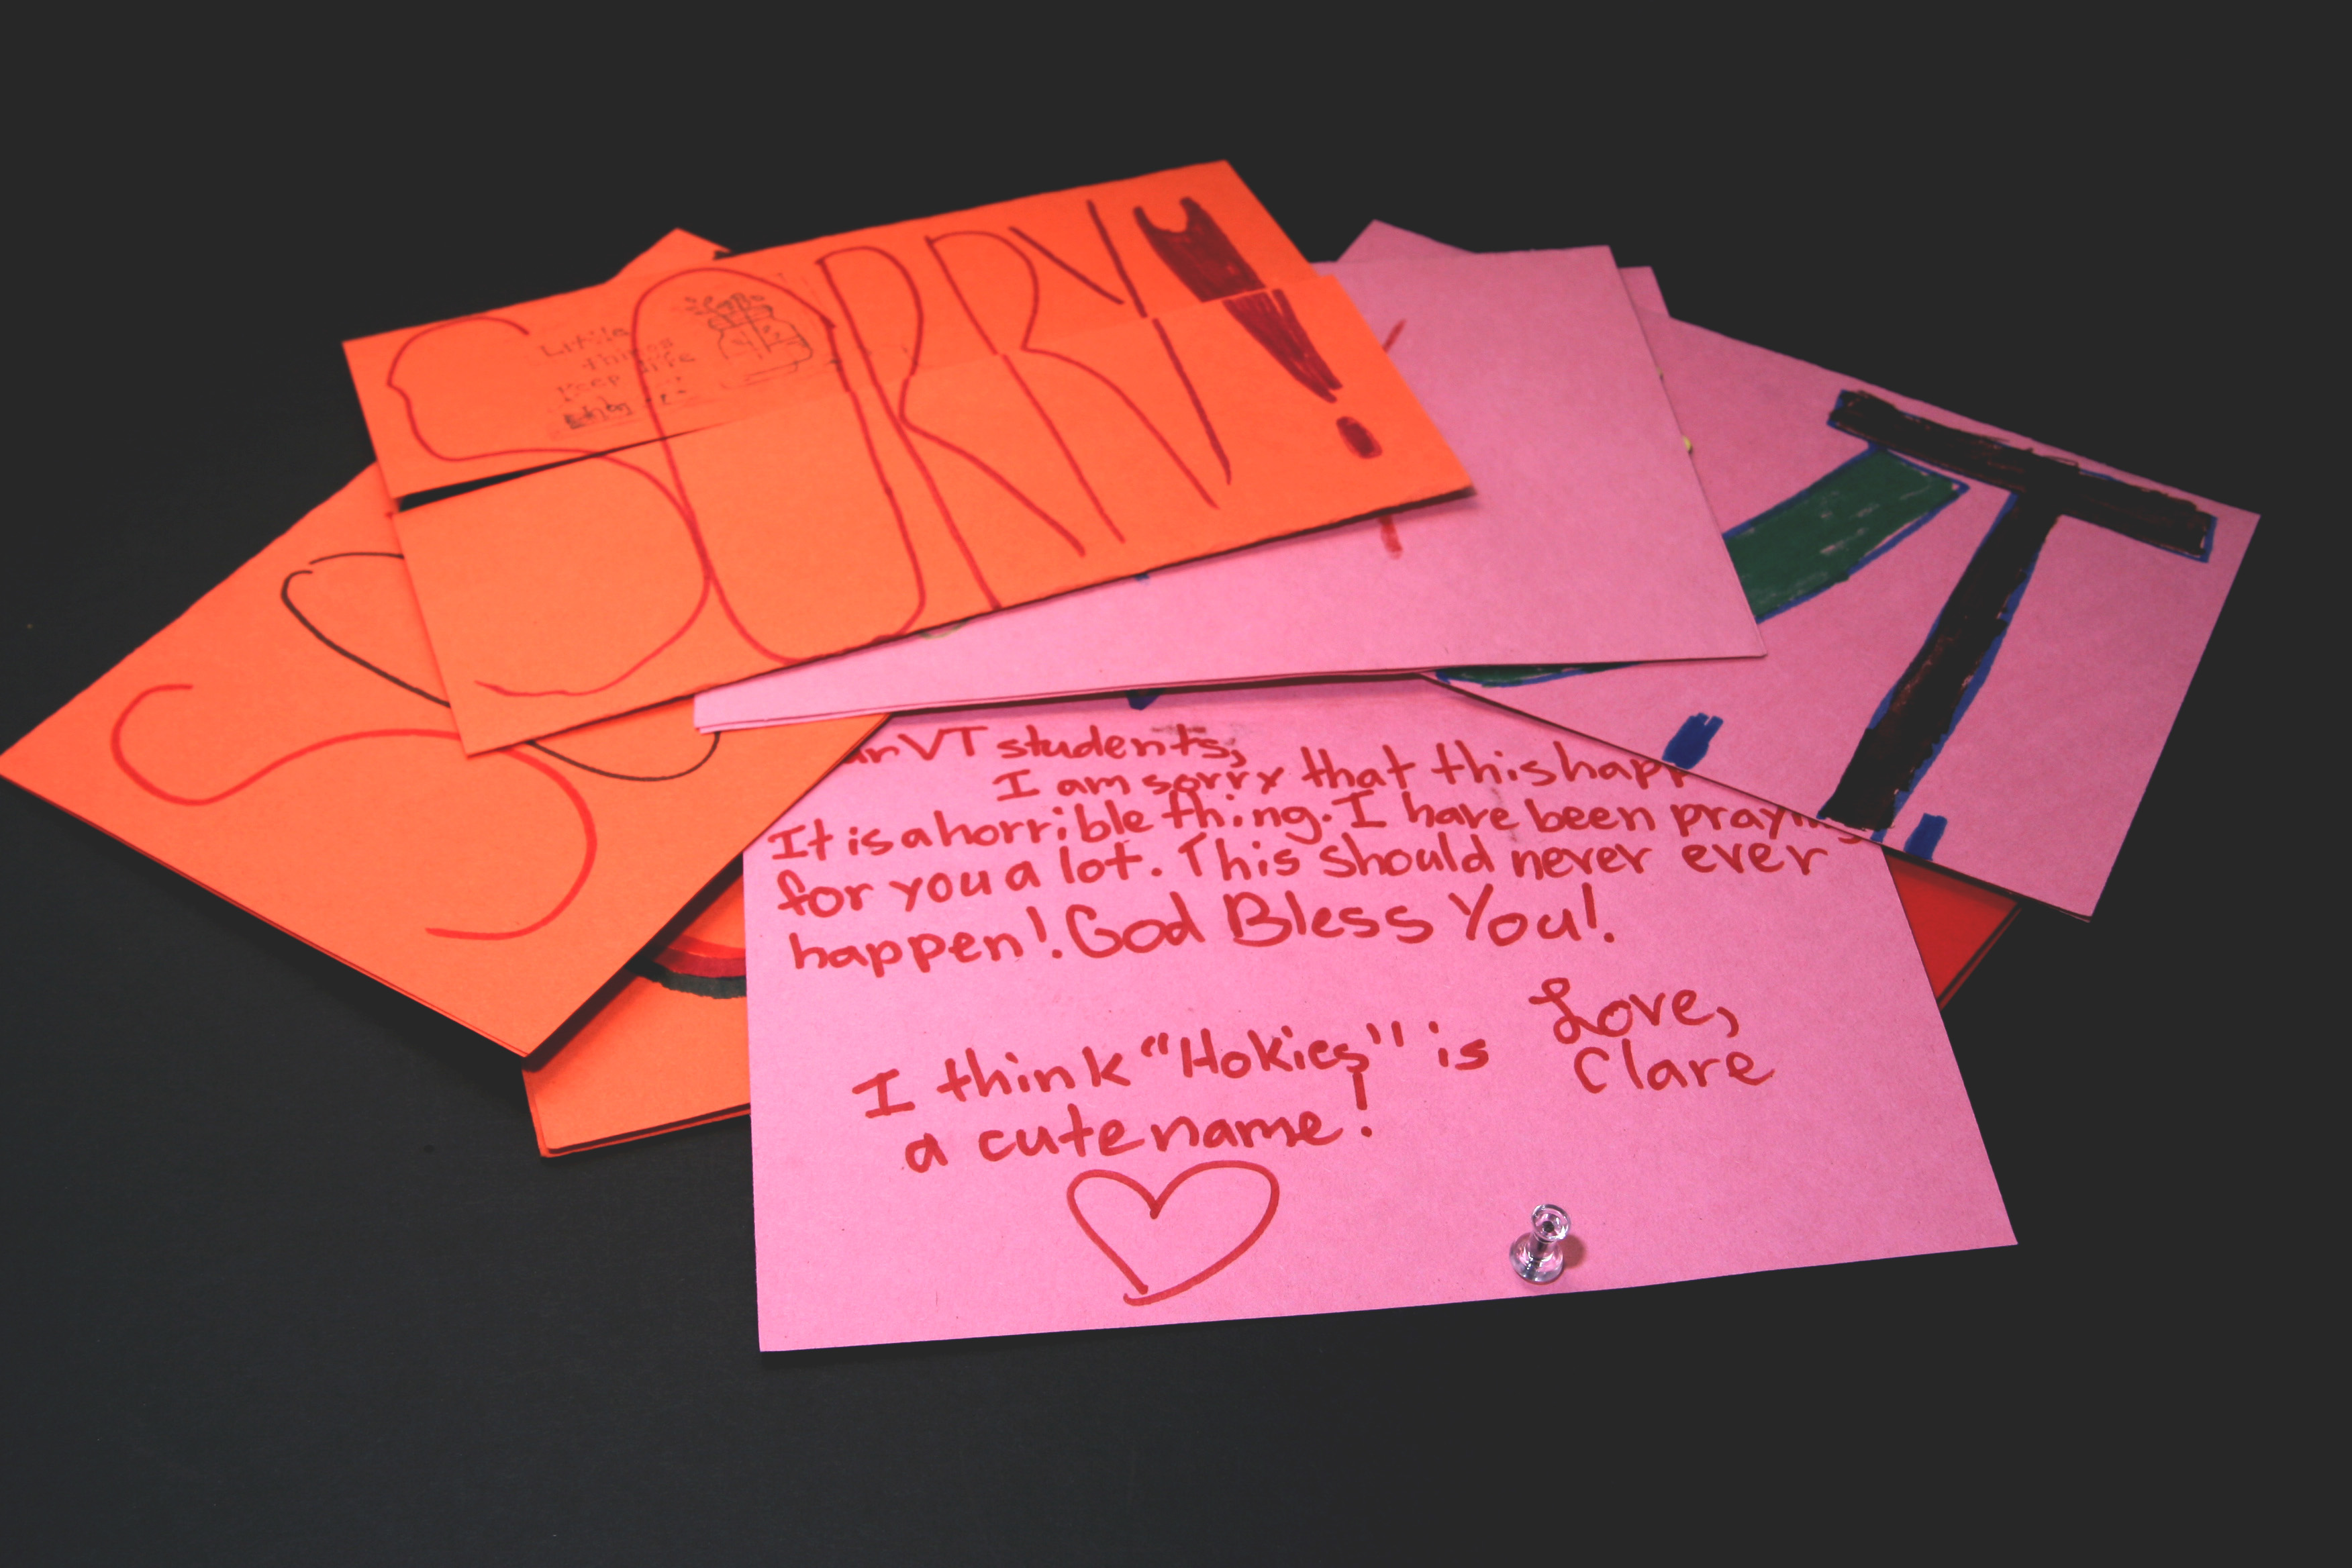 SORRY!
Little
things
keep life
T
VT students,
I am sorry that this happ
It is a horrible thing. I have been praying
for you a lot. This should never ever
happen! God Bless You!
Love,
Clare
I think "Hokies" is
a cute name!